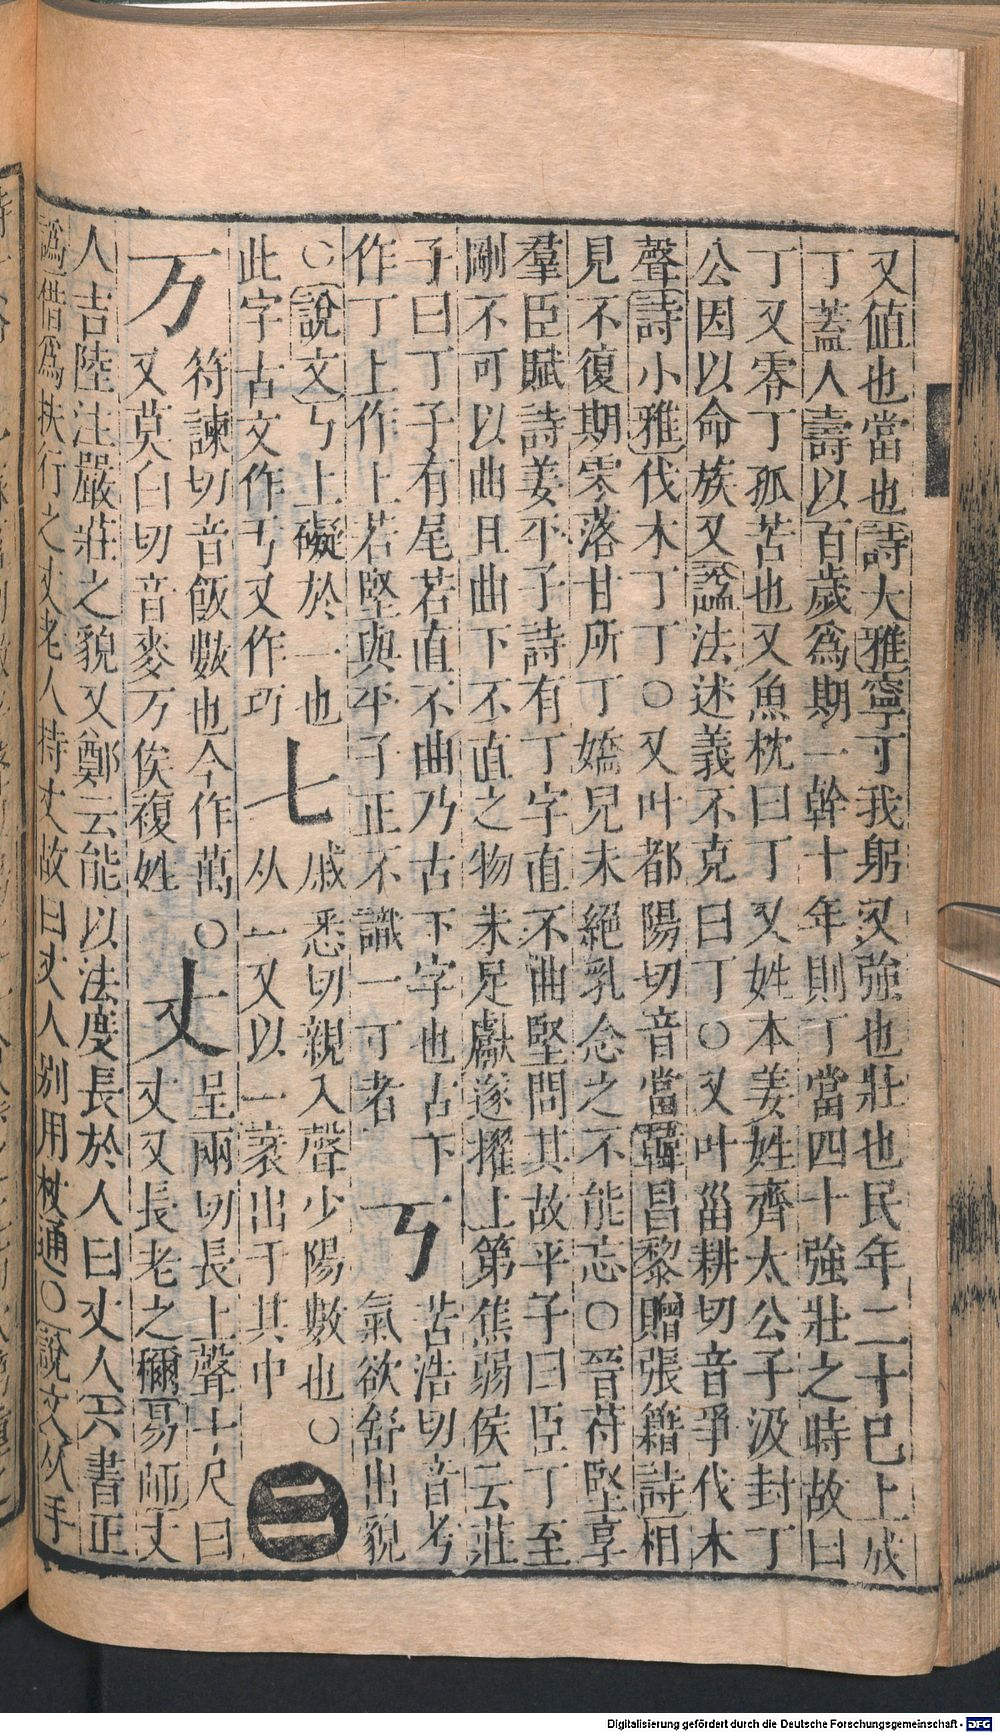 又值也當也詩大雅寧丁我躬又強也壯也民年二十已上成
丁蓋人壽以百歲爲期一幹十年則丁當四十強壯之時故曰
丁又零丁孤苦也又魚枕曰丁又姓本姜姓齊太公子汲封丁
公因以命族又諡法述義不克曰丁○又叶甾耕切音爭伐木
聲詩小雅伐木丁丁○又叶都陽切音當韓昌黎贈張籍詩相
見不復期零落甘所丁嬌兒未絕乳念之不能忘○晉苻堅享
羣臣賦詩姜平子詩有丁字直不曲堅問其故平子曰臣丁至
剛不可以曲且曲下不直之物未足獻遂擢上第焦弱侯云莊
子曰丁子有尾若直不曲乃古下字也古下
作丁上作丄若堅與平子正不識一可者
丂
苦浩切音考
氣欲舒出貌
○說文丂上礙於一也
此字古文作丂又作巧
七
戚悉切親入聲少陽數也○
从一又以一䙚出于其中
二
万
符諫切音飯數也今作萬○
又莫白切音麥万俟複姓
丈
呈兩切長上聲十尺曰
丈又長老之稱易師丈
人吉陸注嚴莊之貌又鄭云能以法度長於人曰丈人六書正
譌借爲扶行之丈老人持丈故曰丈人別用杖通○說文从手
Digitalisierung gefördert durch die Deutsche Forschungsgemeinschaft - DFG